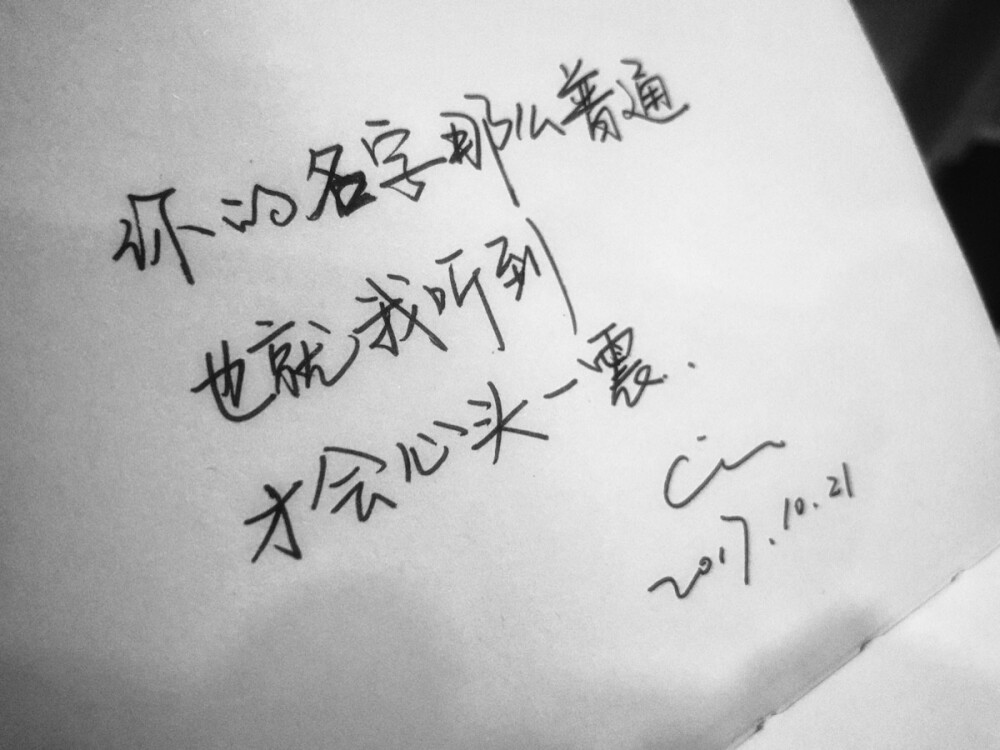 你的名字那么普通
也就我听到
才会心头一震.
2017.10.21